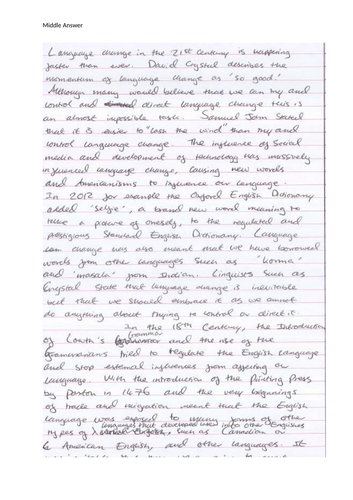 Middle Answer
Language change in the 21st Century is happening
faster than ever. David Crystal describes the
momentum of language change as 'so good.'
Although many would believe that we can try and
control and direct language change this is
an almost impossible task. Samuel John Stated
that it is easier to "lash the wind" than try and
control language change. The influence of Social
media and development of technology has massively
influenced language change, causing new words
and Americanisms to influence our language.
In 2012 for example the Oxford English Dictionary
added 'selfie', a brand new word meaning to
take a picture of oneself, to the regulated and
prestigious Standard English Dictionary. Language
change was also meant that we have borrowed
words from other languages such as 'korma'
and 'masala' from Indian. Linguists such as
Crystal state that language change is inevitable
but that we should embrace it as we cannot
do anything about trying to control or direct it.
In the 18th Century, the Introduction
of Lowth's grammar and the rise of the
Grammarians tried to regulate the English Language
and stop external influences from affecting our
language. With the introduction of the Printing Press
by in 1476 and the very beginnings
of trade and migration meant that the English
Language was exposed to many forms of other
languages that developed into other Englishes
types of English, such as Canadian or
American English, and other languages. It